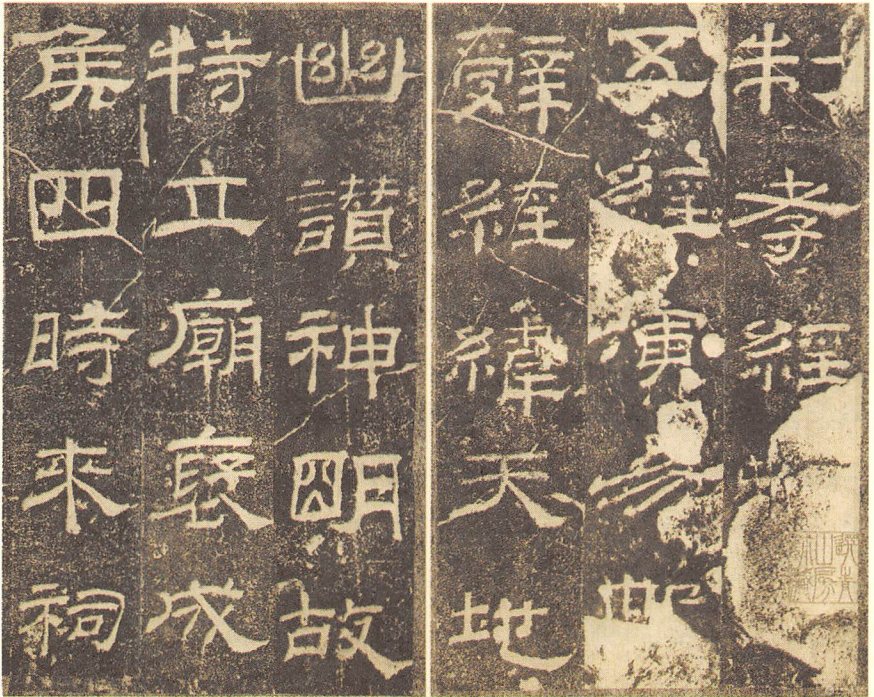 制孝經
五經演易
辭經緯天地
幽讚神明故
特立廟褒成
侯四時來祠